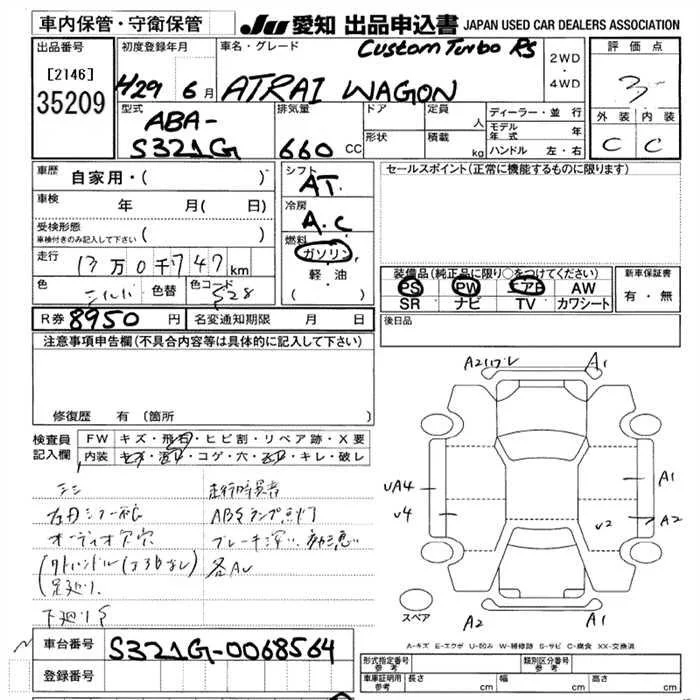 車内保管・守衛保管 JU 愛知 出品申込書 JAPAN USED CAR DEALERS ASSOCIATION
出品番号
[2146]
35209
初度登録年月
H29 6月
車名・グレード
Custom Turbo RS
ATRAI WAGON
2WD
・
4WD
評価点
3
外装 内装
C C
型式
ABA-
S321G
排気量
660 CC
ドア
形状
定員 人
積載 kg
ディーラー・並行
モデル年式 年
ハンドル 左・右
車歴
自家用・( )
車検 年 月( 日)
受検形態
車検付きのみ記入して下さい ( )
走行
13万0千747km
色
シルバー
色替
色コード
S28
シフト
AT
冷房
A.C
燃料
ガソリン
軽・油
( )
セールスポイント(正常に機能するものに限ります)
装備品(純正品に限り○をつけてください)
PS PW エアB AW
SR ナビ TV カワシート
新車保証書
有・無
R券 8950円
名変通知期限 月 日
後日品
注意事項申告欄(不具合内容等は具体的に記入して下さい)
修復歴 有 〔箇所
検査員記入欄
FW キズ・飛石・ヒビ割・リペア跡・X要
内装 キズ・汚れ・コゲ・穴・・キレ・破レ
オーディオ穴
下廻りS
ABSランプ点灯
A2 A1
UA4
A1
A2
A2 A1
スペア
A-キズ E-エクボ U-凹み W-補修跡 S-サビ C-腐食 XX-交換済
車台番号
S321G-0068564
登録番号
形式指定番号
参考
類別区分番号
参考
車庫証明用
参考
長さ cm 幅 cm 高さ cm